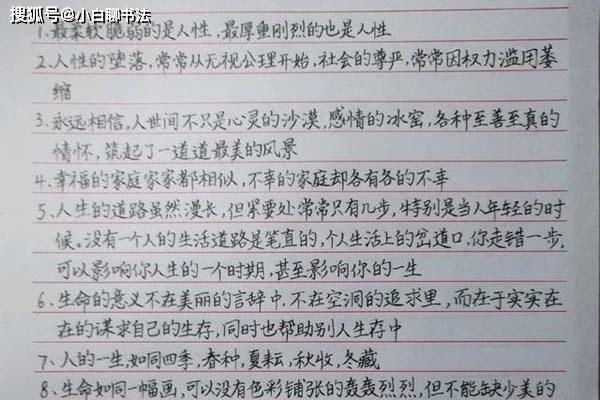 搜狐号@小白聊书法
1.最柔软脆弱的是人性,最厚重刚烈的也是人性
2.人性的堕落,常常从无视公理开始,社会的尊严,常常因权力滥用萎
缩
3.永远相信,人世间不只是心灵的沙漠,感情的冰窑,各种至善至真的
情怀,筑起了一道道最美的风景
4.幸福的家庭家家都相似,不幸的家庭却各有各的不幸
5、人生的道路虽然漫长,但紧要处常常只有几步,特别是当人年轻的时
候。没有一个人的生活道路是笔直的,个人生活上的岔道口,你走错一步,
可以影响你人生的一个时期,甚至影响你的一生
6、生命的意义不在美丽的言辞中,不在空洞的追求里,而在于实实在
在的谋求自己的生存,同时也帮助别人生存中
7、人的一生,如同四季,春种,夏耘,秋收,冬藏
8、生命如同一幅画,可以没有色彩铺张的轰轰烈烈,但不能缺少美的